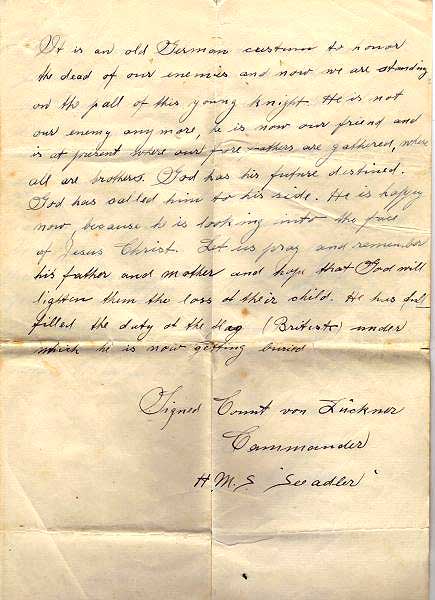 It is an old German custum to honor
the dead of our enemies and now we are standing
on the pall of this young knight. He is not
our enemy anymore, he is now our friend and
is at present where our fore-athers are gathered, where
all are brothers. God has his future destined.
God has called him to his side. He is happy
now, because he is looking into the face
of Jesus Christ. Let us pray and remember
his father and mother and hope that God will
lighten them the loss of their child. He has ful-
filled the duty of the flag (British) under
which he is now getting buried
Signed Count von Lückner
Commander
H.M.S "Seeadler"